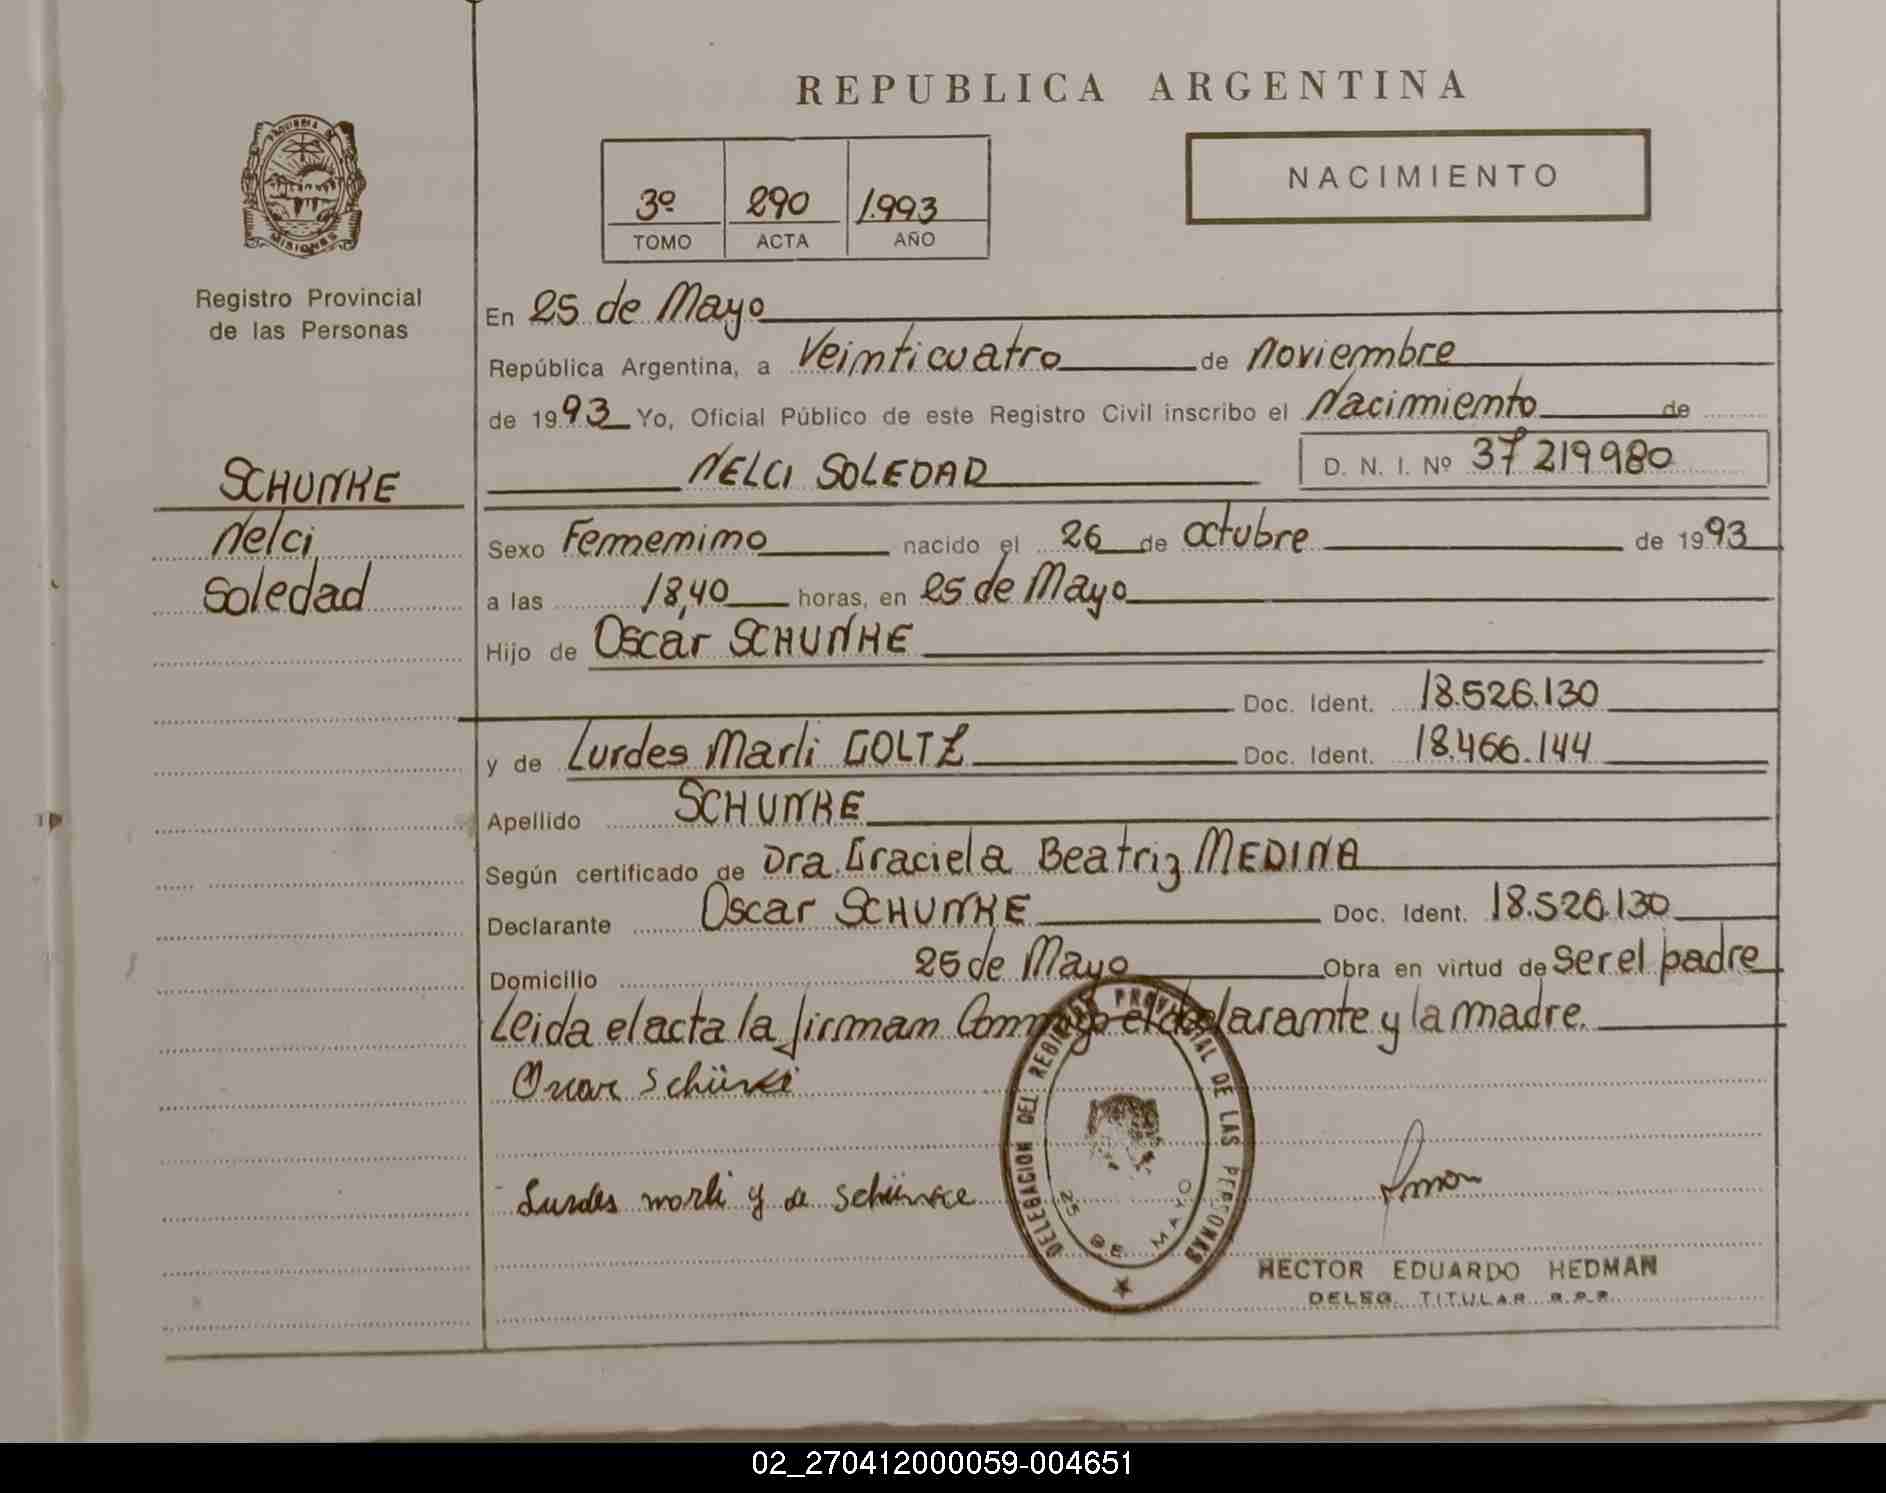 REPUBLICA ARGENTINA
PROVINCIA DE
MISIONES
Registro Provincial
de las Personas
3º 290 1.993
TOMO ACTA AÑO
NACIMIENTO
SCHUNKE
Nelci
Soledad
En 25 de Mayo
República Argentina, a Veinticuatro de Noviembre
de 1993 Yo, Oficial Público de este Registro Civil inscribo el Nacimiento de
NELCI SOLEDAD D. N. I. Nº 37 219980
Sexo Femenino nacido el 26 de octubre de 1993
a las 18,40 horas, en 25 de Mayo
Hijo de Oscar SCHUNKE
Doc. Ident. 18.526.130
y de Lurdes Marli GOLTZ Doc. Ident. 18.466.144
Apellido SCHUNKE
Según certificado de Dra. Graciela Beatriz MEDINA
Declarante Oscar SCHUNKE Doc. Ident. 18.526.130
Domicilio 25 de Mayo Obra en virtud de ser el padre
Leida el acta la firman Conmigo el declarante y la madre.
Oscar Schünke
Lurdes marli g de schünke
DELEGACION DEL REGISTRO PROVINCIAL DE LAS PERSONAS
25 DE MAYO
HECTOR EDUARDO HEDMAN
DELEG. TITULAR R.P.P.
02_270412000059-004651